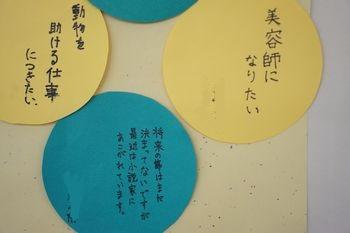 美容師に
なりたい
動物を
助ける仕事
につきたい。
将来の夢はまだ
決まってないですが
最近は小説家に
あこがれています。